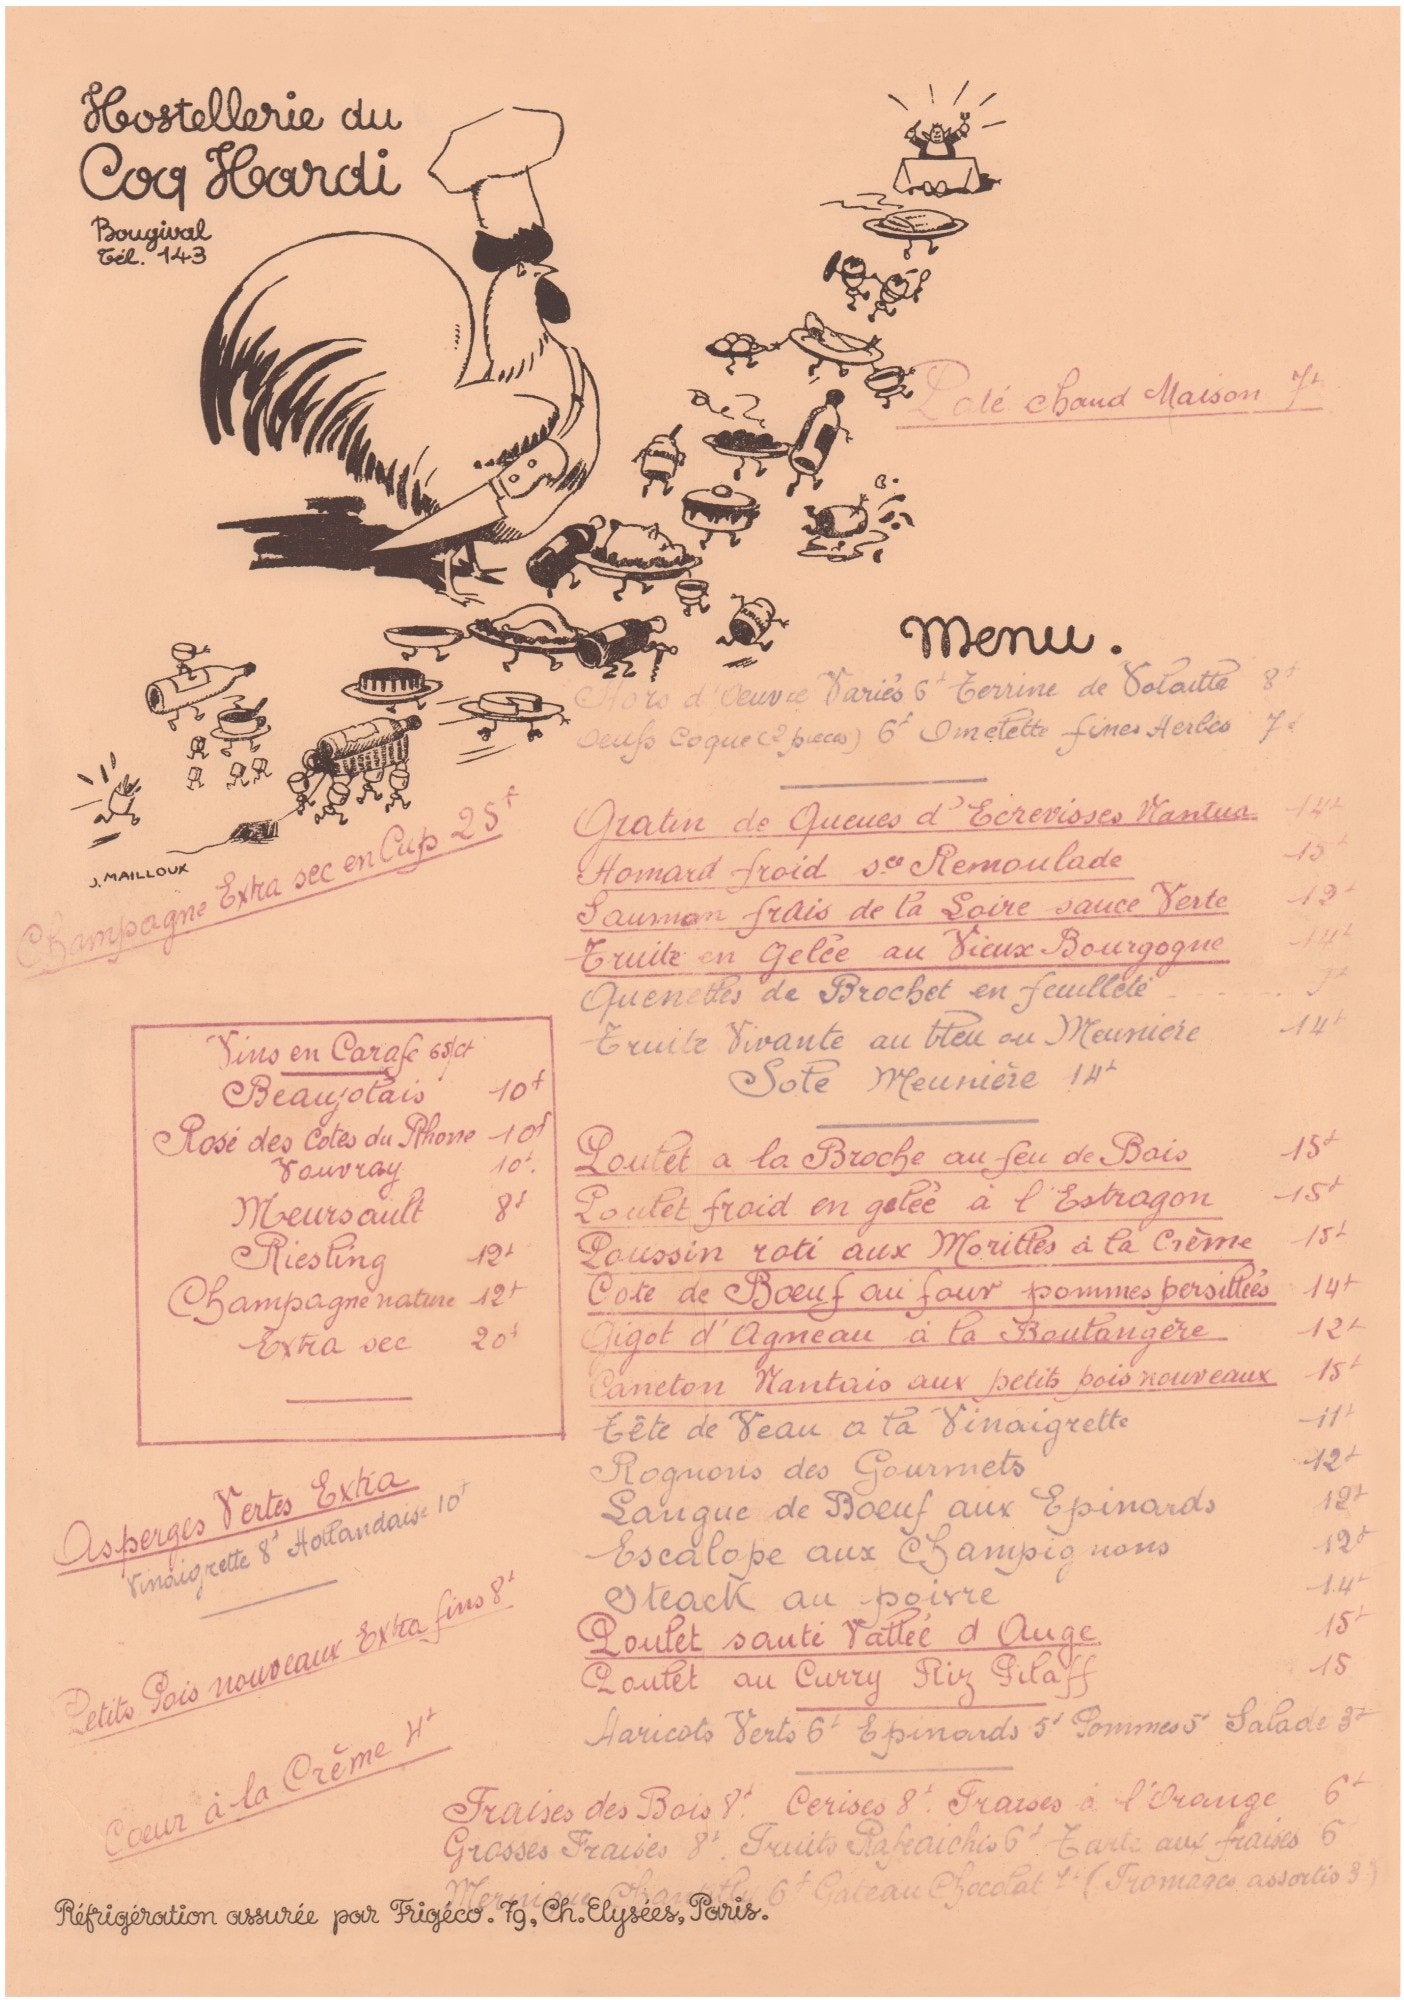 Hostellerie du
Coq Hardi
Bougival
Tél. 143
Paté chaud Maison 7f
J. MAILLOUX
Champagne Extra sec en Cup 25f
Menu.
Hors d'Oeuvre Variés 6f Terrine de Volaille 8f
Oeufs Coque (2 pieces) 6f Omelette fines Herbes 7f
Gratin de Queues d'Ecrevisses Nantua 14f
Homard froid sce Remoulade 15f
Saumon frais de la Loire sauce Verte 12f
Truite en Gelée au Vieux Bourgogne 14f
Quenelles de Brochet en feuilleté
Truite Vivante au bleu ou Meunière 14f
Sole Meunière 14f
Poulet a la Broche au feu de Bois 15f
Poulet froid en gelée à l'Estragon 15f
Poussin roti aux Morilles à la Crème 15f
Cote de Boeuf au four pommes persillées 14f
Gigot d'Agneau à la Boulangère 12f
Caneton Nantais aux petits pois nouveaux 15f
Tête de Veau a la Vinaigrette 11f
Rognons des Gourmets 12f
Langue de Boeuf aux Epinards 12f
Escalope aux Champignons 12f
Steack au poivre 14f
Poulet sauté Vallée d'Auge 15f
Poulet au Curry Riz Pilaff 15
Haricots Verts 6f Epinards 5f Pommes 5f Salade 3f
Vins en Carafe 65/ct
Beaujolais 10f
Rosé des Cotes du Rhone 10f
Vouvray 10f.
Meursault 8f
Riesling 12f
Champagne nature 12f
Extra sec 20f
Asperges Vertes Extra
Vinaigrette 8f Hollandaise 10f
Petits Pois nouveaux Extra fins 8f
Coeur à la Crème 4f
Fraises des Bois 8f. Cerises 8f. Fraises à l'Orange 6f
Grosses Fraises 8f. Fruits Rafraichis 6f Tarte aux fraises 6
Meringue Chantilly 6f Gateau Chocolat (Fromages assortis 3f)
Réfrigération assurée par Frigéco. 79, Ch. Elysées, Paris.